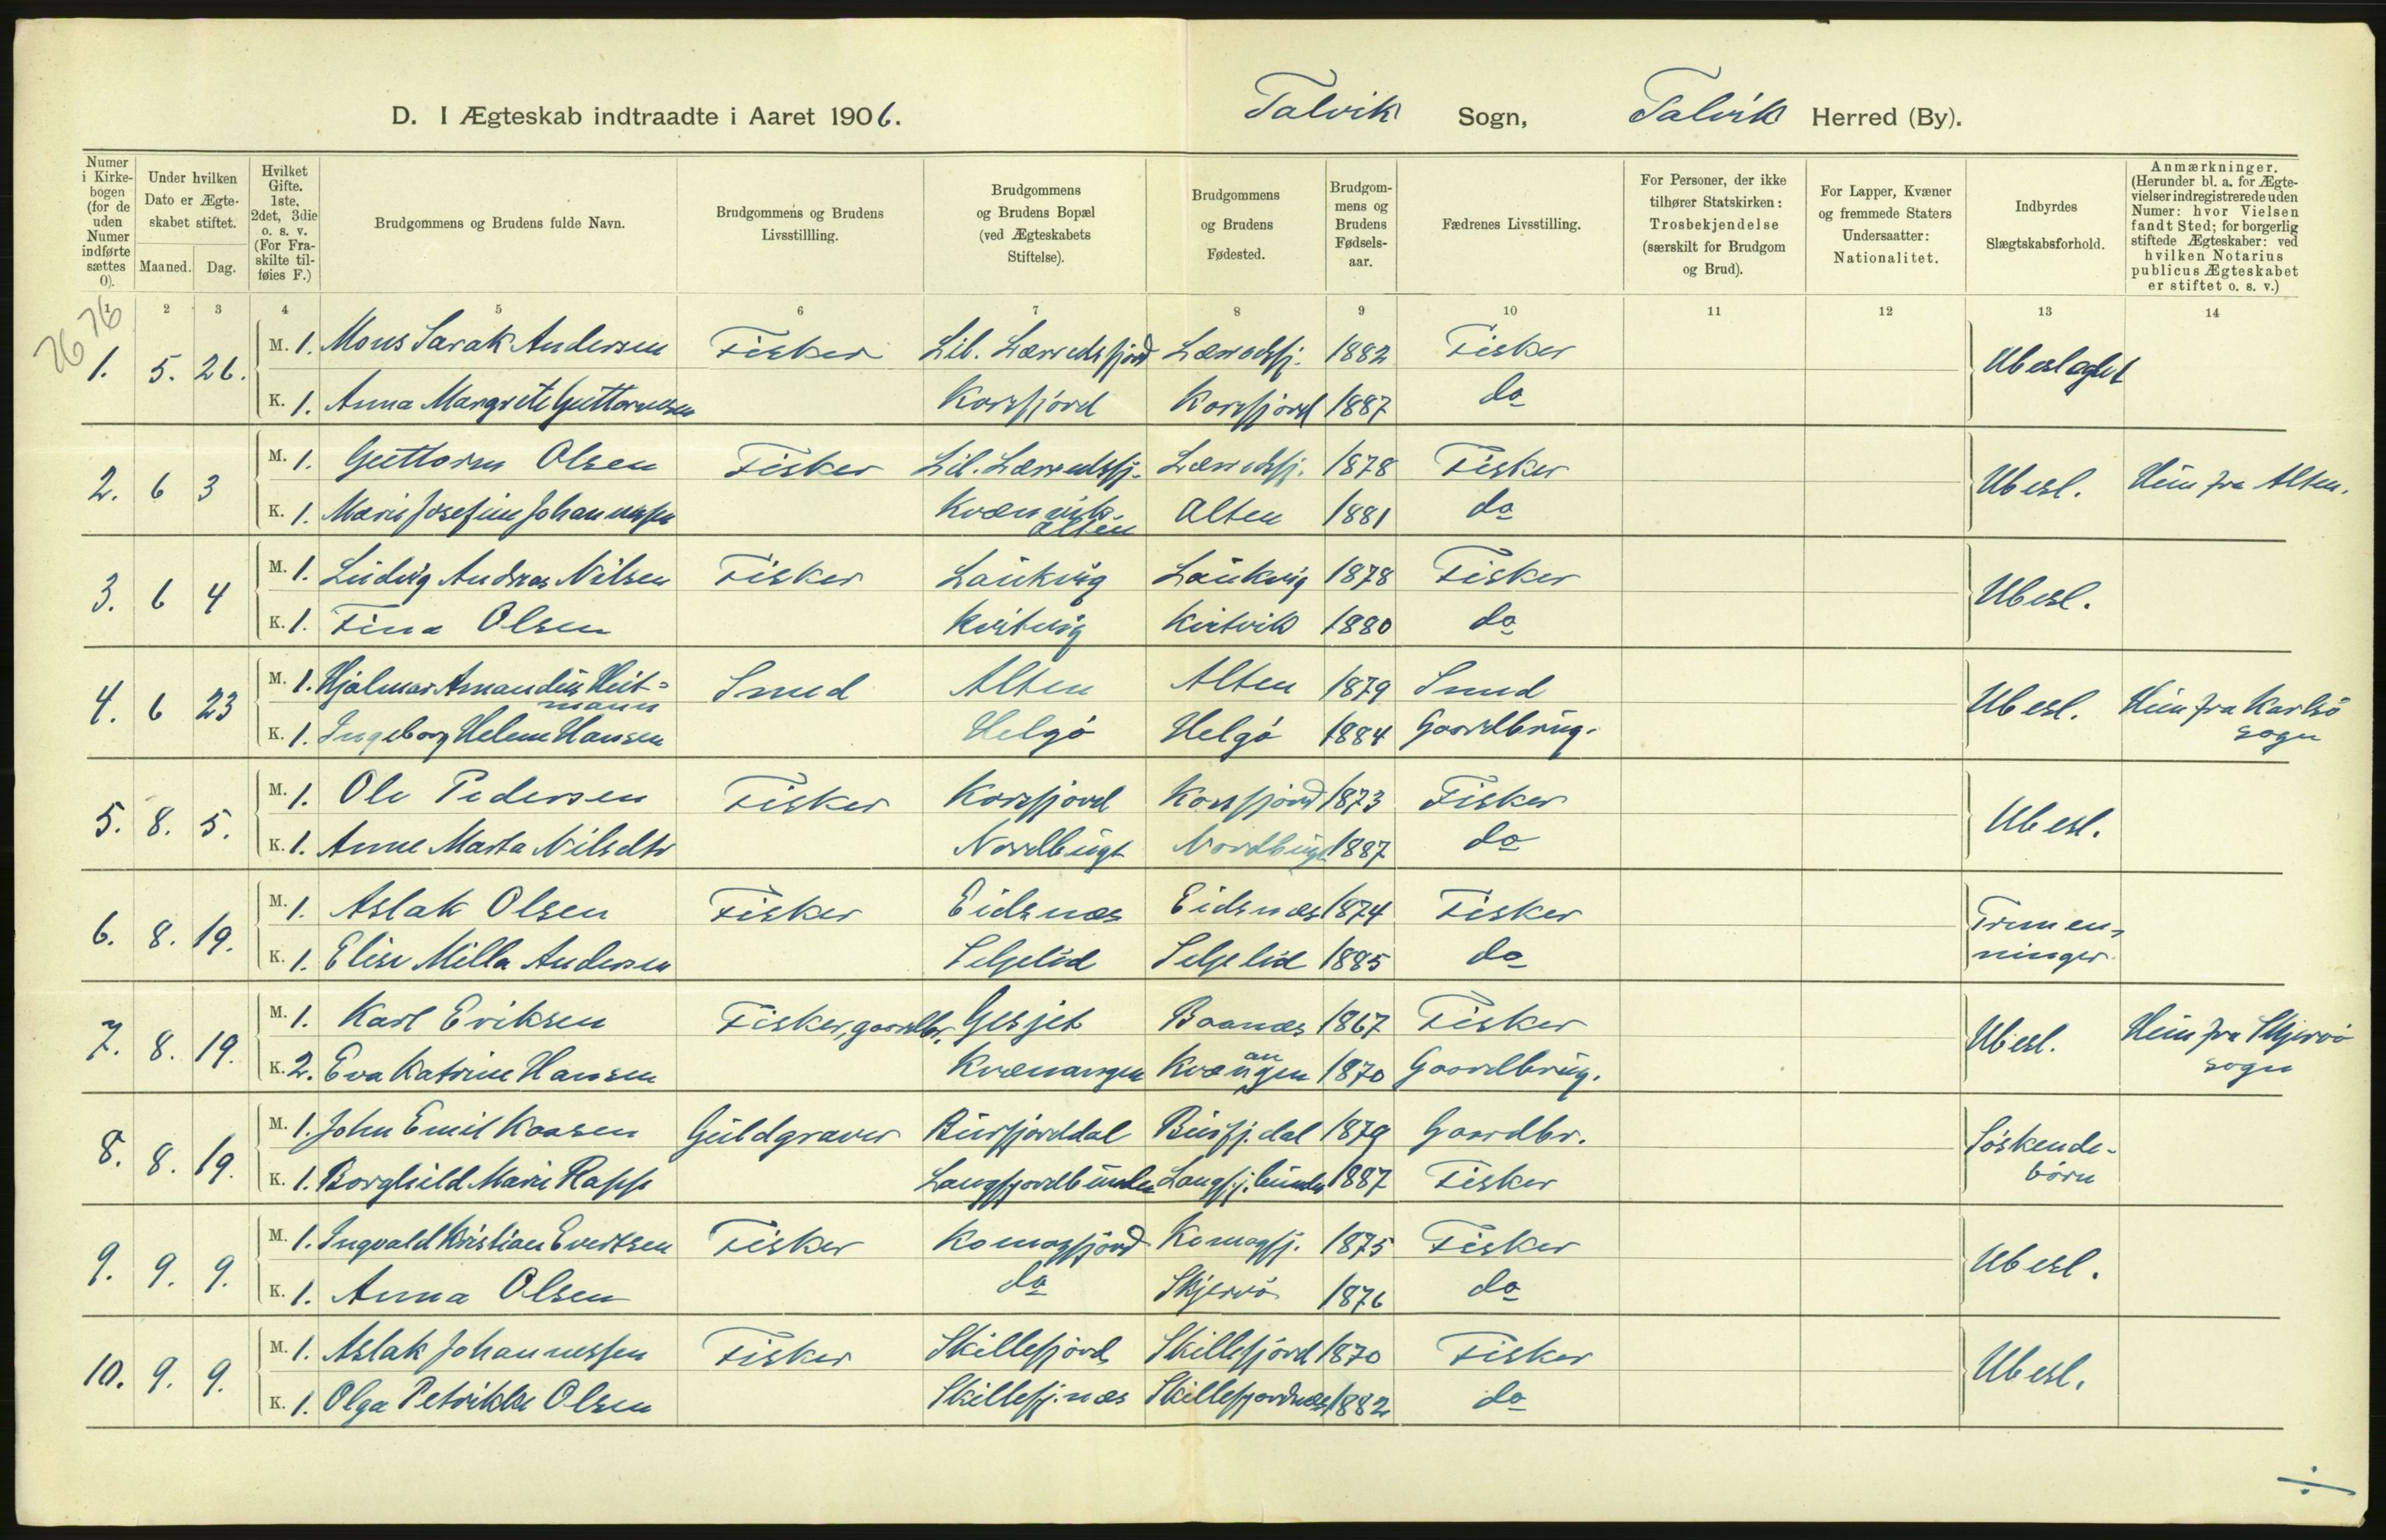 D. I Ægteskab indtraadte i Aaret 1906. Talvik Sogn, Talvik Herred (By).
Numer i Kirkebogen (for de uden Numer indførte sættes 0).
Under hvilken Dato er Ægteskabet stiftet.
Maaned. Dag.
Hvilket Gifte. 1ste, 2det, 3die o. s. v. (For Fraskilte tilføies F.)
Brudgommens og Brudens fulde Navn.
Brudgommens og Brudens Livsstillling.
Brudgommens og Brudens Bopæl (ved Ægteskabets Stiftelse).
Brudgommens og Brudens Fødested.
Brudgommens og Brudens Fødselsaar.
Fædrenes Livsstilling.
For Personer, der ikke tilhører Statskirken: Trosbekjendelse (særskilt for Brudgom og Brud).
For Lapper, Kvæner og fremmede Staters Undersaatter: Nationalitet.
Indbyrdes Slægtskabsforhold.
Anmærkninger. (Herunder bl. a. for Ægtevielser indregistrerede uden Numer: hvor Vielsen fandt Sted; for borgerlig stiftede Ægteskaber: ved hvilken Notarius publicus Ægteskabet er stiftet o. s. v.)
1 2 3 4 5 6 7 8 9 10 11 12 13 14
76 76
1. 5. 26. M. 1. Mons Sarak Andersen Fisker Lil. Lærredsfjord Lærredsfj. 1882 Fisker Ubeslægtet
K. 1. Anna Margrete Guttormsen Korsfjord Korsfjord 1887 do
2. 6 3 M. 1. Guttorm Olsen Fisker Lil. Lærredsfj. Lærredsfj. 1878 Fisker Ubesl. Hun fra Alten.
K. 1. Marie Josefine Johannessen Kvænvik Alten Alten 1881 do
3. 6 4 M. 1. Ludvig Andreas Nilsen Fisker Laukvig Laukvig 1878 Fisker Ubesl.
K. 1. Fina Olsen Kvitvig Kvitvik 1880 do
4. 6 23 M. 1. Hjalmar Amandus Heitmann Smed Alten Alten 1879 Smed Ubesl. Hun fra Karlsö sogn
K. 1. Ingeborg Helene Hansen Helgö Helgö 1884 Gaardbrug.
5. 8. 5. M. 1. Ole Pedersen Fisker Korsfjord Korsfjord 1873 Fisker Ubesl.
K. 1. Anne Marta Nilsdtr Nordbugt Nordbugt 1887 do
6. 8. 19. M. 1. Aslak Olsen Fisker Eidsnæs Eidsnæs 1874 Fisker Tremenninger
K. 1. Elise Milla Andersen Seljelid Seljelid 1885 do
7. 8. 19. M. 1. Karl Eriksen Fisker, gaardbr. Gesjet Baanæs 1867 Fisker Ubesl. Hun fra Skjervö sogn
K. 2. Eva Katrine Hansen Kvænangen Kvænangen 1870 Gaardbrug.
8. 8. 19. M. 1. John Emil Kaasen Guldgraver Burfjorddal Burfj. dal 1879 Gaardbr. Söskendebörn
K. 1. Borghild Marie Rapp Langfjordbunden Langfj. bunden 1887 Fisker
9. 9. 9. M. 1. Ingvald Kristian Evertsen Fisker Komagfjord Komagfj. 1875 Fisker Ubesl.
K. 1. Anna Olsen do Skjervö 1876 do
10. 9. 9. M. 1. Aslak Johannessen Fisker Skillefjord Skillefjord 1870 Fisker Ubesl.
K. 1. Olga Petrikke Olsen Skillefj. næs Skillefjordnæs 1882 do